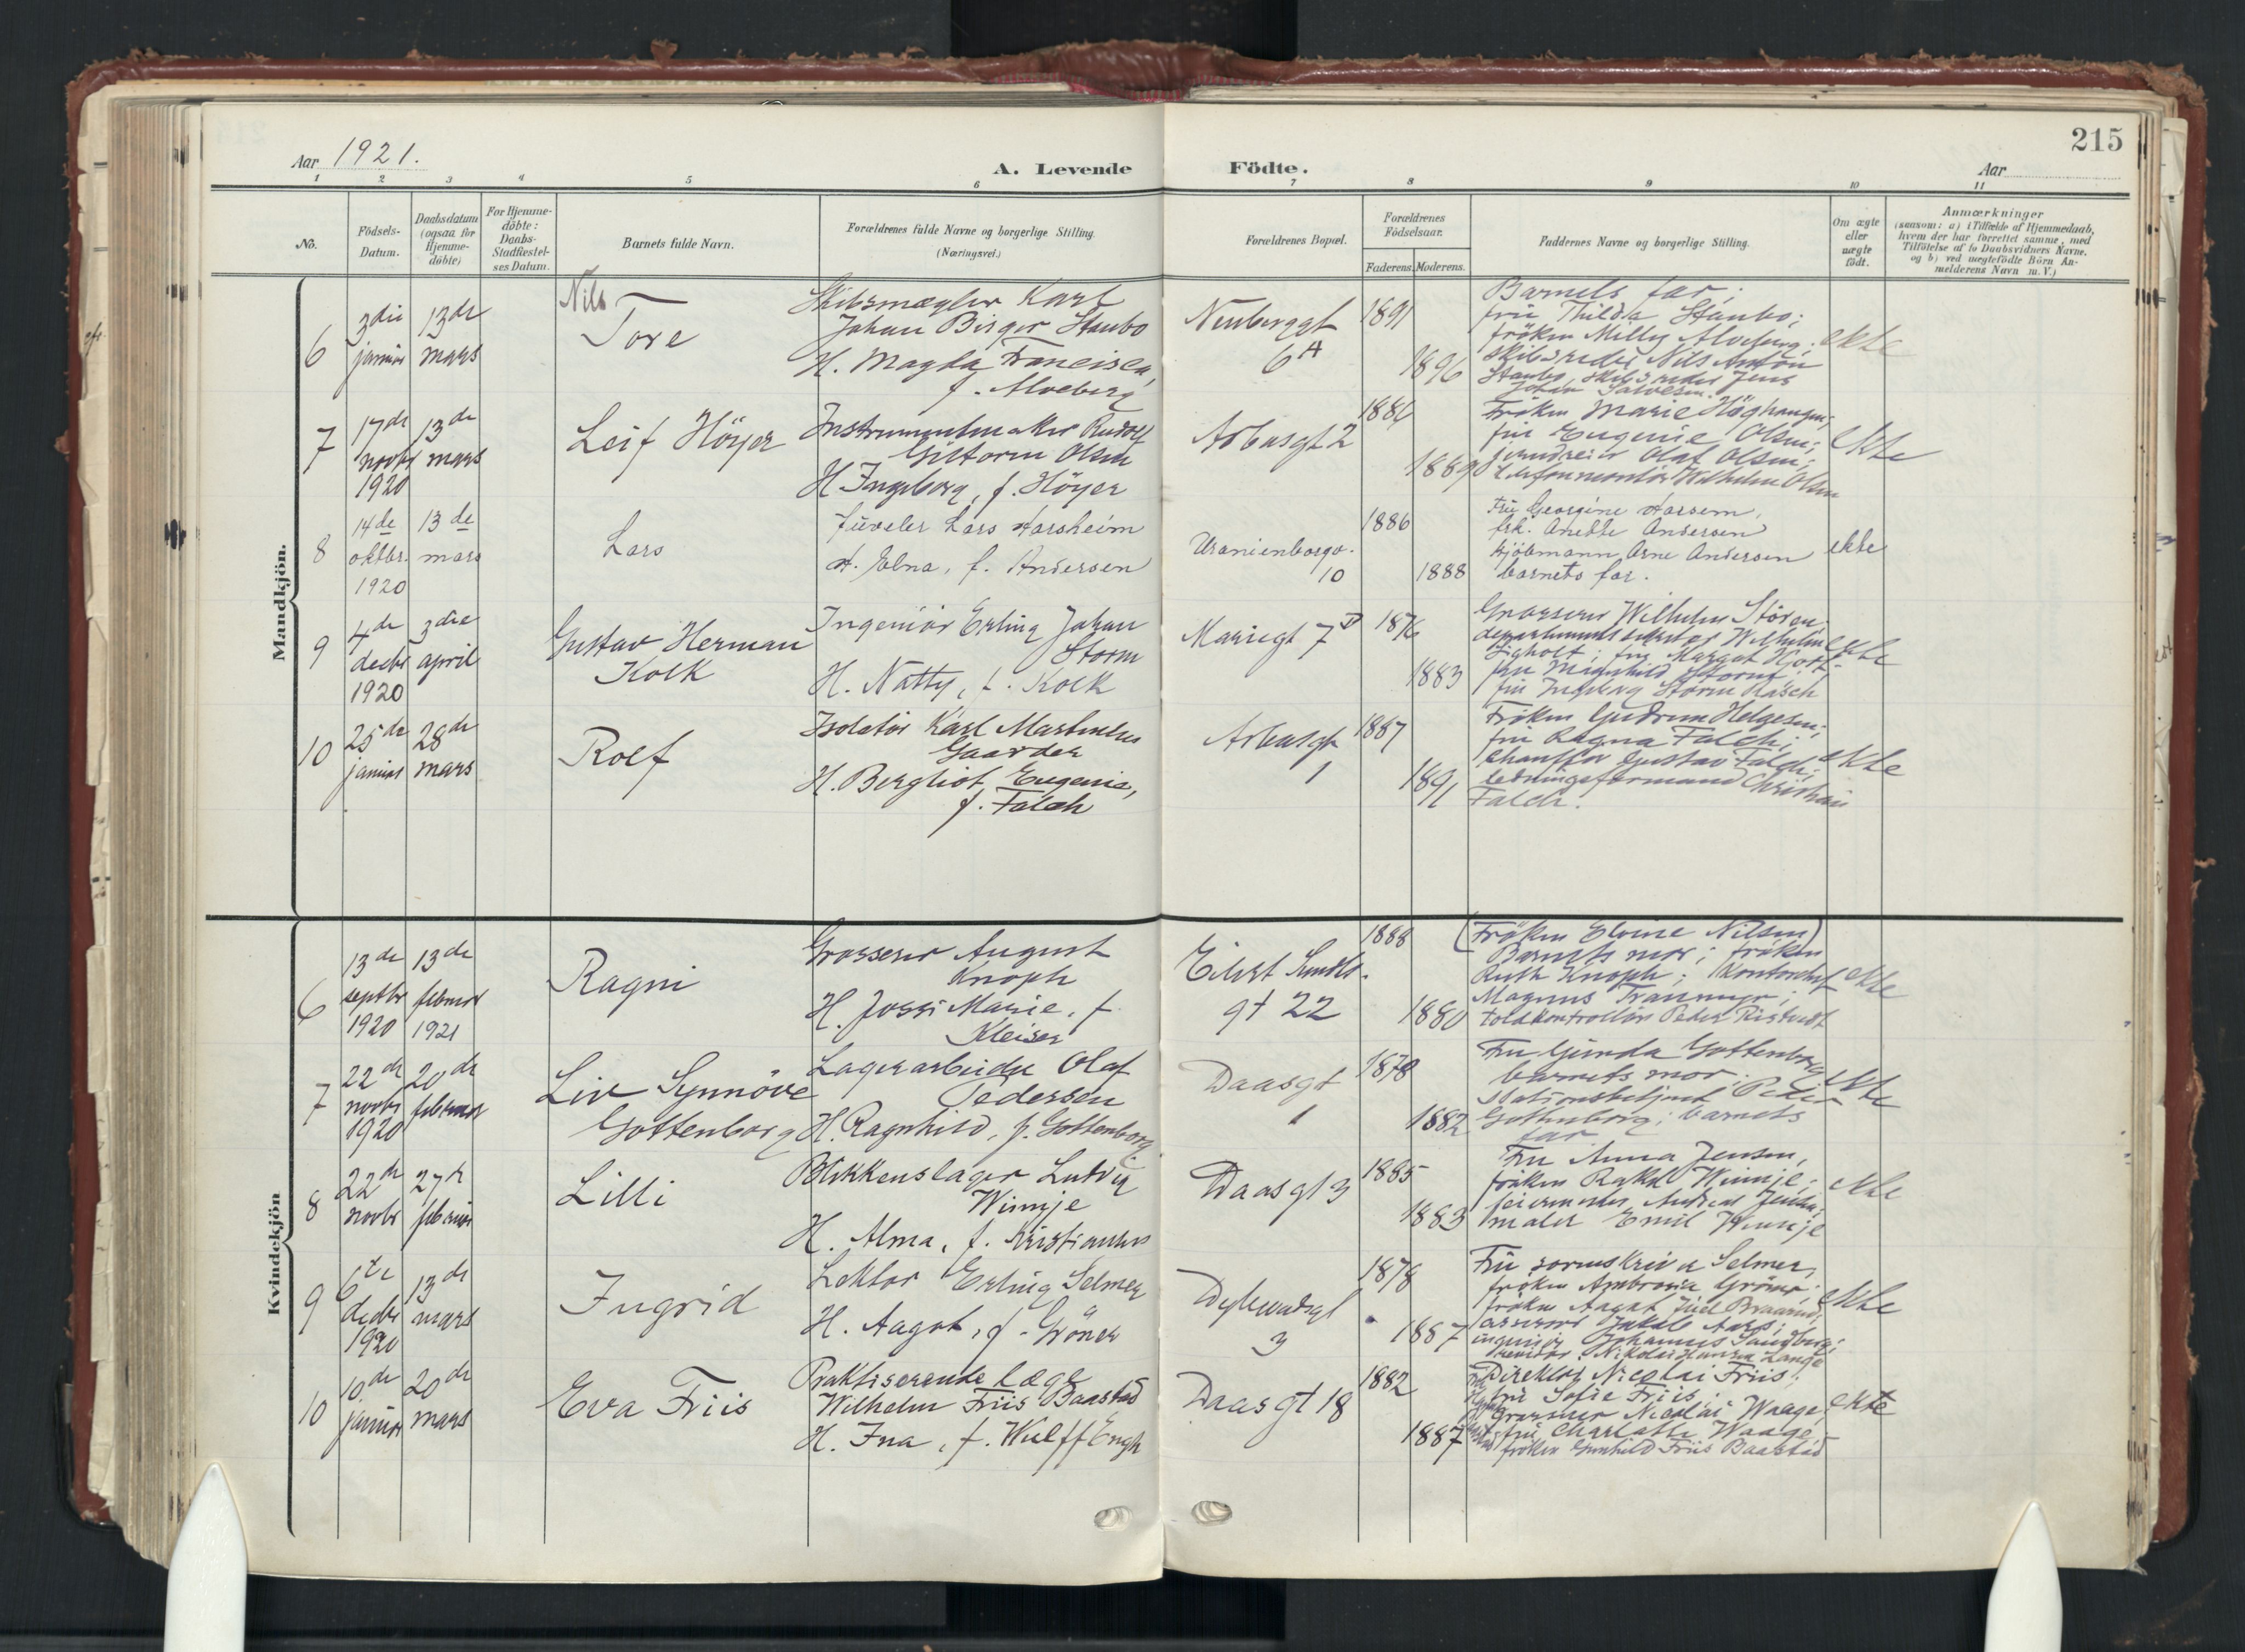 215
Aar 1921.
A. Levende Födte.
Aar
1 2 3 4 5 6 7 8 9 10 11
No.
Födsels-Datum.
Daabsdatum (ogsaa for Hjemme-döbte)
For Hjemme-döbte: Daabs-Stadfæstel-ses Datum.
Barnets fulde Navn.
Forældrenes fulde Navne og borgerlige Stilling.
(Næringsvei.)
Forældrenes Bopæl.
Forældrenes Födselsaar.
Faderens. Moderens.
Faddernes Navne og borgerlige Stilling.
Om ægte eller uægte födt.
Anmærkninger
(saasom: a) i Tilfælde af Hjemmedaab, hvem der har forrettet samme, med Tilföielse af to Daabsvidners Navne. og b) ved uægtefödte Börn An-melderens Navn m. V.)
Mandkjön.
6
3die januar
13de mars
Nils
Tore
Skibsmægler Karl
Johan Birger Staubo
H. Magda Francisca,
f. Alveberg
Neuberggt
6A
1891
1896
Barnets far;
fru Thilda Staubo;
fröken Milly Alveberg;
skibsreder Nils Anton
Staubo, skibsreder Jens
Johan Salvesen.
ekte
7
17de novbr 1920
13de mars
Leif Höyer
Instrumentmaker Rudolf
Olsen
H. Ingeborg, f. Höyer
Arbosgt 2
1886
1889
Fröken Marie Höghaugen;
fru Eugenie Olsen;
Olaf Olsen;
telefonmontör Wilhelm Olsen
ekte
8
14de oktbr. 1920
13de mars
Lars
Juveler Lars Harsheim
H. Elna, f. Andersen
Uranienborgv.
10
1886
1888
Fru Georgine Harsem,
frk. Anette Andersen
kjöbmann Arne Andersen
barnets far.
ekte
9
4de decbr 1920
3die april
Gustav Herman
Kolk
Ingeniör Erling Johan
Storm
H. Natty, f. Kolk
Mariegt 7D
1876
1883
Grosserer Wilhelm Stören,
departementssekretær Wilhelm
Sigholt; fru Margot Hjort
fru Magnhild Storm;
fru Ingeborg Storm Rasch
ekte
10
25de januar
28de mars
Rolf
Isolatör Karl Martinius
Gaarder
H. Bergliot Eugenie,
f. Falch
Arbosgt
1
1887
1891
Fröken Gudrun Helgesen;
fru Ragna Falch;
chaufför Gustav Falch;
ledningsformand Christian
Falch.
ekte
Kvindekjön
6
13de septbr 1920
13de februar 1921
Ragni
Grosserer August
Knoph
H. Jossi Marie, f.
Kleiser
Eilert Sundts
gt 22
1888
1880
(Fröken Elvine Nilsen)
Barnets mor; fröken
Ruth Knoph; kontorchef
Magnus Tranmyr;
toldkontrollör Peder
ekte
7
22de novbr 1920
20de februar
Liv Synnöve
Gottenborg
Lagerarbeider Olaf
Pedersen
H. Ragnhild, f. Gottenborg
Daasgt
1
1878
1882
Fru Gunda Gottenborg
barnets mor;
stationsbetjent Peder
Gottenborg; barnets
far
ekte
8
22de novbr
27de februar
Lilli
Blikkenslager Ludvig
Winnje
H. Alma, f. Kristiansen
Daasgt 3
1885
1883
Fru Anna Jensen,
fröken Rakel Winnje;
feiermester Andreas Jensen;
maler Emil Winnje
ekte
9
6te decbr 1920
13de mars
Ingrid
Lektor Erling Selmer
H. Aagot, f. Gröner
3
1878
1887
Fru sorenskriver Selmer,
fröken Ambrosia Gröner;
fröken Aagot Juel Braarud;
assessor Jakob Aars;
ingeniör Johannes Sandberg;
Nikolai Hansen Lange
ekte
10
10de januar
20de mars
Eva Friis
Praktiserende læge
Wilhelm Friis Baastad
H. Ina, f. Wulff Engh
Daasgt 18
1882
1887
Direktör Nicolai Friis;
fru Sofie Friis;
grosserer Nicolai Waage;
fru Charlotte Waage
fröken Gunhild Friis Baastad
ekte